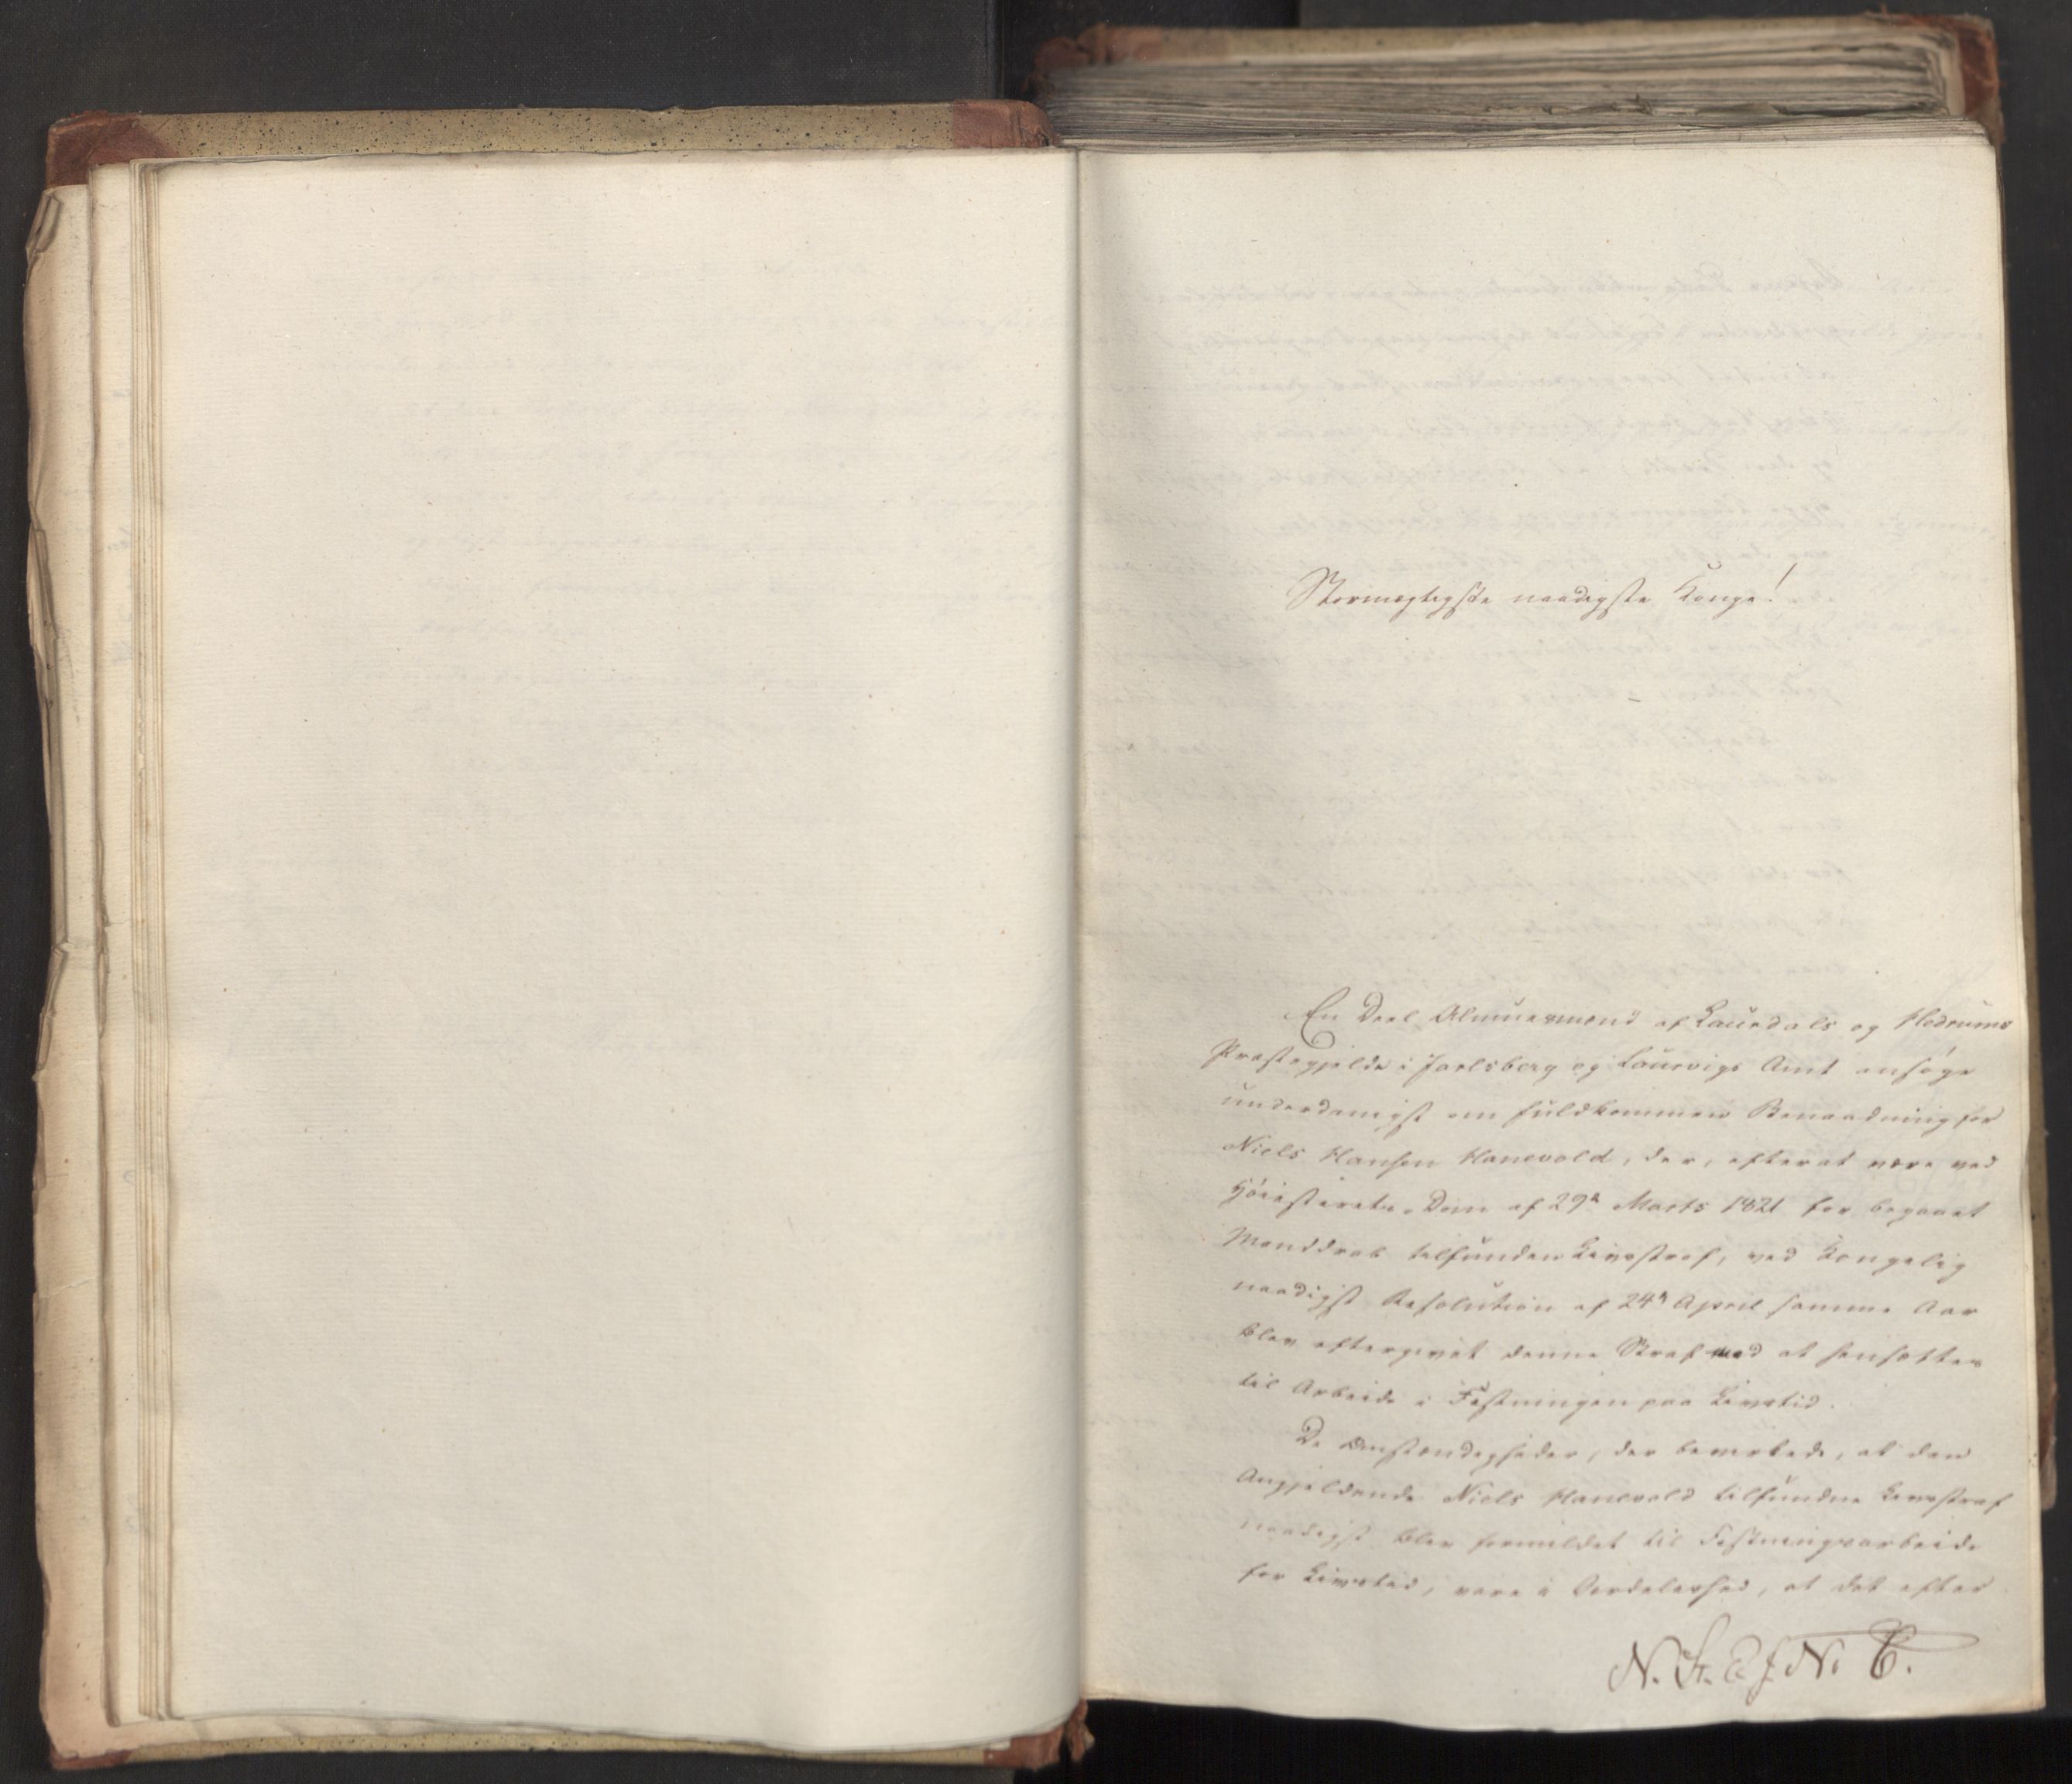 Stormægtigste naadigste Konge!
En Deel Almuesmænd af Laurdals og Hedrums
Præstegjelde i Jarlsberg og Laurvigs Amt ansøge
underdanigst om fuldkommen Benaadning for
Niels Hansen Hanevold, der, efterat være ved
Høiesterets Dom af 29n Marts 1821 for begaaet
Manddrab tilfunden Livsstraf, ved Kongelig
naadigst Resolution af 24n April samme Aar
blev eftergivet denne Straf mod at hensættes
til Arbeide i Fæstningen paa Livstid.
De Omstændigheder, der bevirkede, at den
Angjeldende Niels Hanevold tilfundne Livsstraf
naadigst blev formildet til Fæstningsarbeide
for Livstid, vare i Særdeleshed, at det efter
N. St. E. J. No 6.